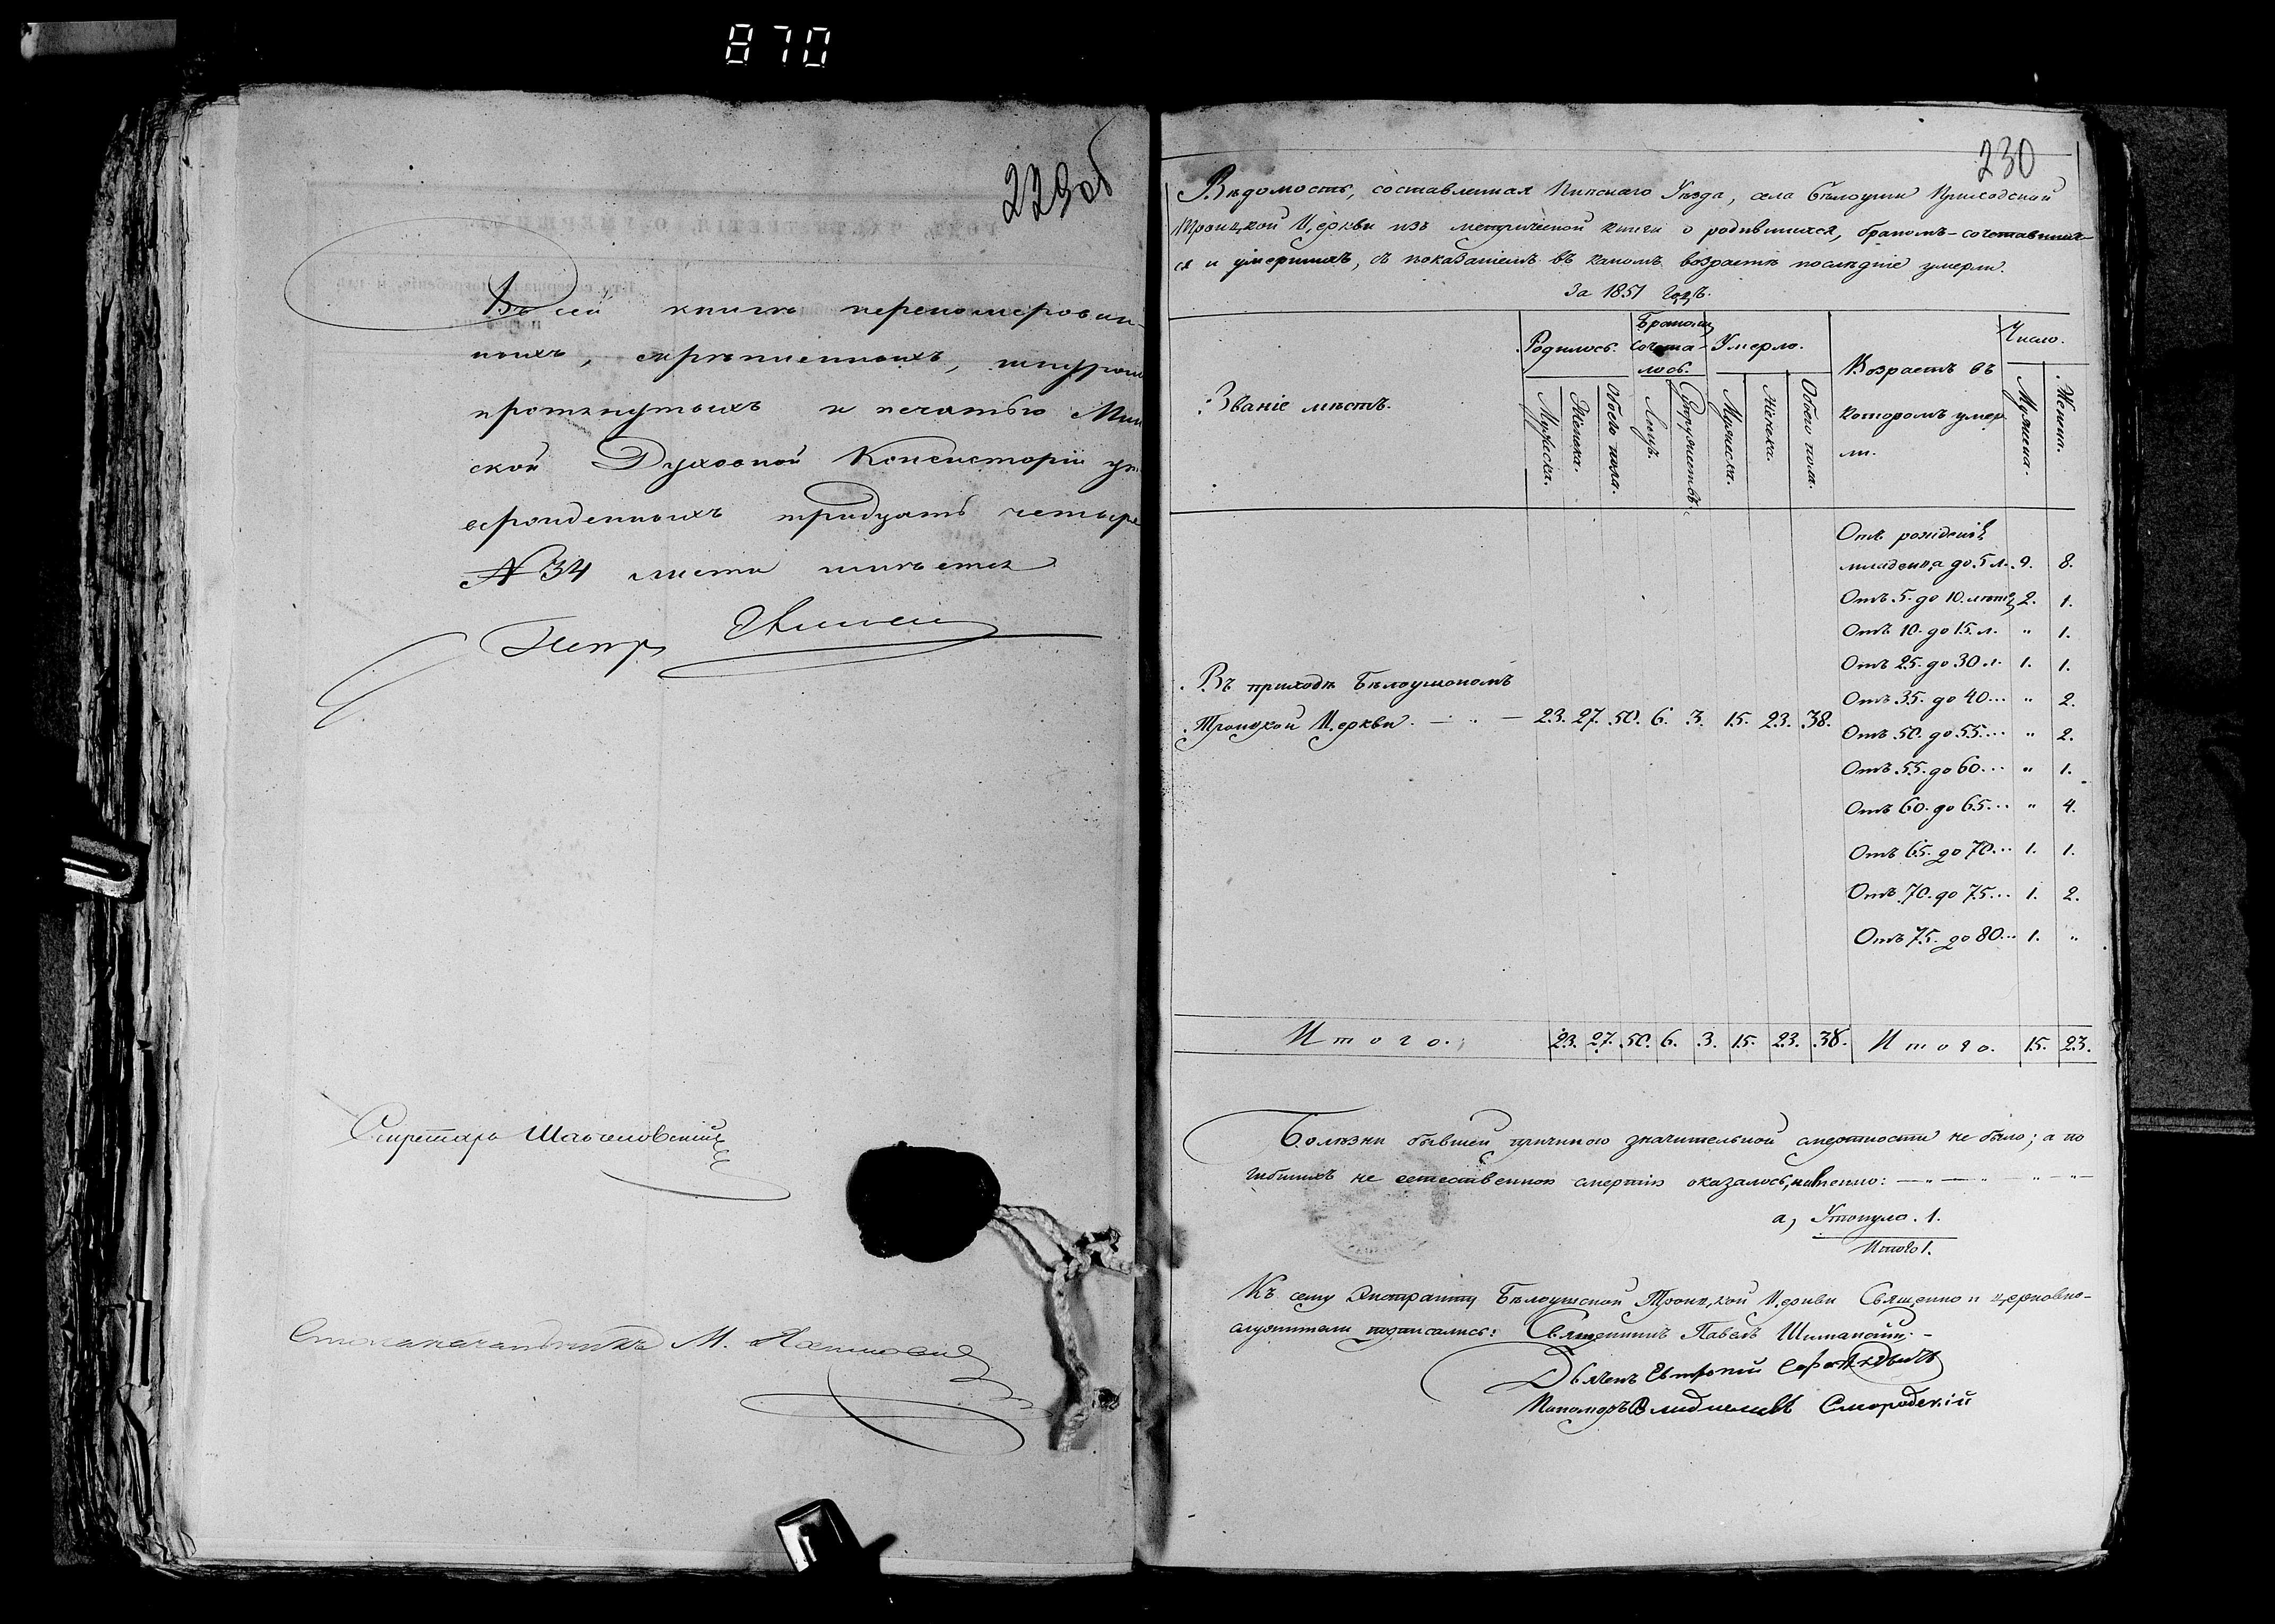 870
229об
Въ сей книгѣ перенумерован-
ныхъ, скрѣпленныхъ, шнуром
протянутыхъ и печатью Мин
ской Духовной Консисторіи ут
вержденныхъ тридцать четыре
№ 34 листа имѣется
Петръ
Секретарь
Столоначальникъ М.
230
Вѣдомость, составленная Пинскаго Уѣзда, села Бѣлоуши Приходской
Троицкой Церкви изъ метрической книги о родившихся, бракомъ-сочетавших-
ся и умершихъ, съ показаніемъ въ какомъ возрастѣ послѣдніе умерли.
За 1851 годъ.
Званіе мѣстъ. Родилось. Бракомъ сочета-лось. Умерло. Возрастъ въ которомъ умер-ли. Число.
Мужеска. Женска. Обоего пола. Лицъ. Супружествъ. Мужеска. Женска. Обоего пола. Мужеска. Женска.
Отъ рожденія
младенца до 5 л. 9. 8.
Отъ 5. до 10. лѣтъ 2. 1.
Отъ 10. до 15. л. " 1.
Отъ 25. до 30 л. 1. 1.
Отъ 35. до 40... " 2.
Въ приходѣ Бѣлоушскомъ
Троицкой Церкви. — " — 23. 27. 50. 6. 3. 15. 23. 38.
Отъ 50. до 55... " 2.
Отъ 55. до 60... " 1.
Отъ 60. до 65... " 4.
Отъ 65. до 70... 1. 1.
Отъ 70. до 75... 1. 2.
Отъ 75. до 80... 1. "
Итого. 23. 27. 50. 6. 3. 15. 23. 38. Итого. 15. 23.
Болѣзни бывшей причиною значительной смертности не было; а по
гибшихъ не естественною смертію оказалось, именно: — " — " — " — " —
а, Утонуло. 1.
Итого 1.
Къ сему Экстракту Бѣлоушской Троицкой Церкви Священно и церковно-
служители подписались: Священникъ Павелъ
Дьячекъ Евтропій
Пономарь Смородскій